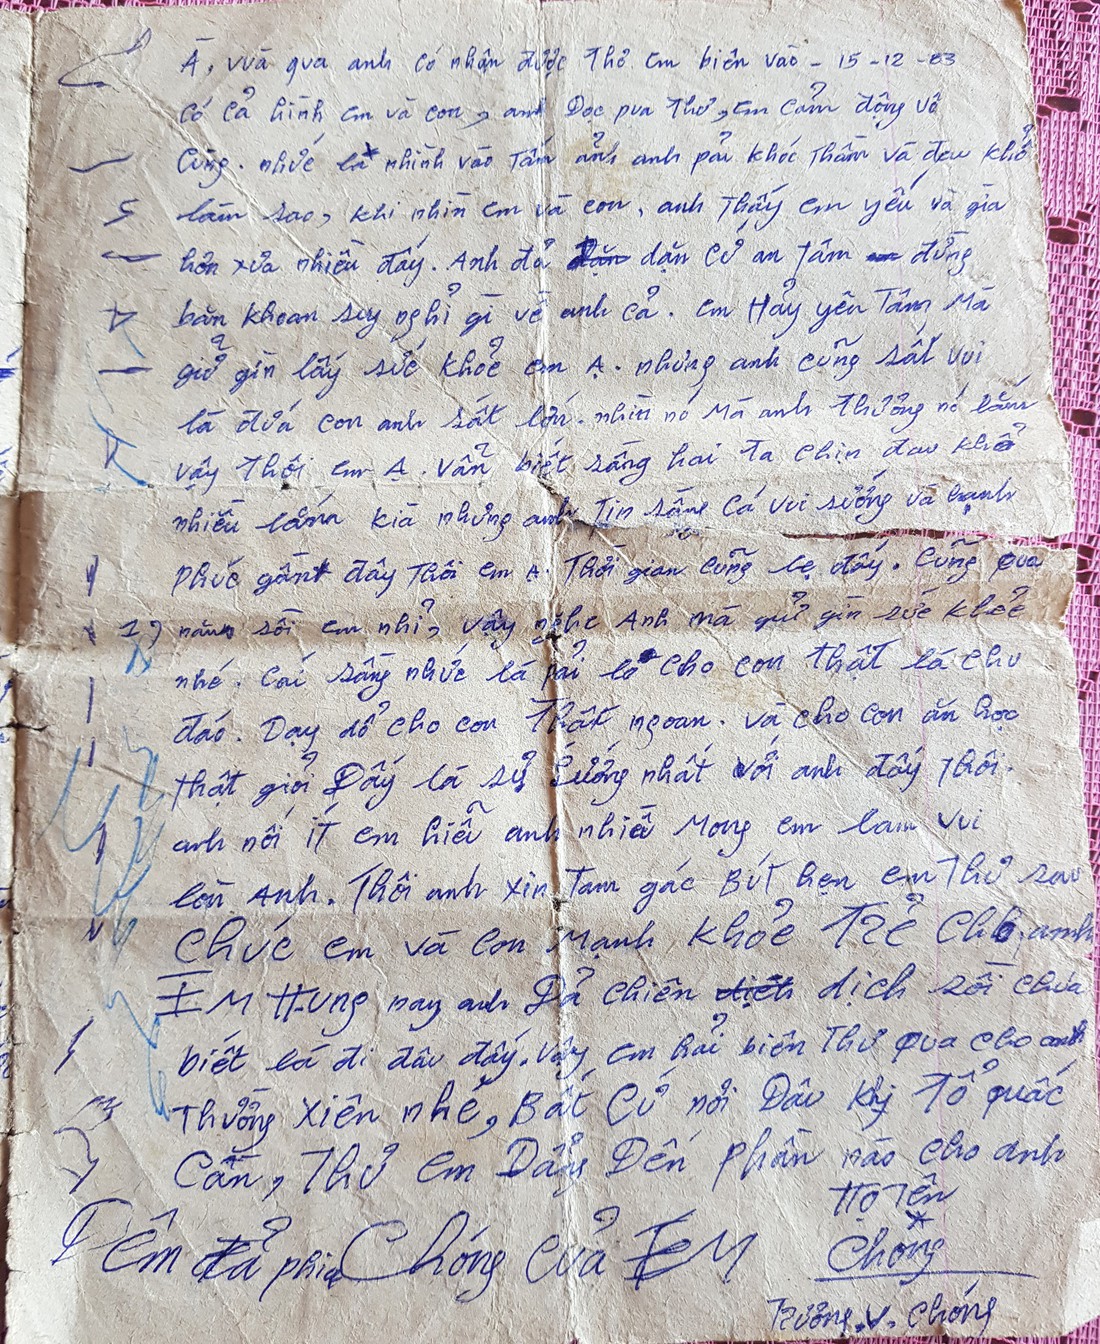 À, vừa qua anh có nhận được thơ em biên vào - 15-12-83
có cả hình em và con, anh Đọc pua thư, em cảm động vô
Cùng. nhức là nhình vào Tấm ảnh anh pải khóc thầm và đau khổ
làm sao, khi nhìn em và con, anh thấy em yếu và gìa
hơn xưa nhiều đấy. Anh đả dặn cứ an tâm đừng
băn khoan suy nghỉ gì về anh cả. em Hảy yên Tâm Mà
giử gìn lấy sức khỏe em Ạ. nhưng anh cũng sất vui
là đứa con anh sất lớn. nhìn nó Mà anh thương nó lắm
vậy thôi em Ạ. vẩn biết sằng hai ta chịn đau khổ
nhiều lắm kià nhưng anh Tin sằng Cá vui sướng và hạnh
phúc gần đây thôi em Ạ. Thời gian cũng lẹ đấy. Cũng qua
năm sồi em nhỉ, vậy nghe Anh mà giử gìn sức khỏe
nhé. Cái sằng nhức là pải lo cho con thật là chu
đáo. Dạy dổ cho con thật ngoan. và cho con ăn học
thật giỏi Đấy là sự sướng nhất với anh đấy thôi.
anh nói ít em hiểu anh nhiều Mong em lam vui
lòn Anh. Thôi anh xin Tam gác Bút hẹn em Thư sau
Chúc em và con Mạnh khỏe Trẻ Cho anh
EM Hưng nay anh Đả chiến dịch sồi chưa
biết là đi đâu đấy. vậy em hải biên Thư qua cho anh
Thưởng xiên nhé, Bất Cứ nơi Đâu khj Tổ quốc
Cần, Thư em Dảng Đến phần nào cho anh
Họ Tên
Đêm đả phia Chóng Của EM
Chóng
Trương. v. chóng